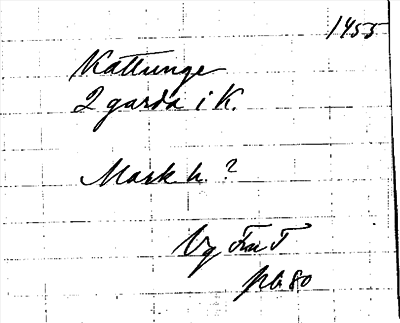 1455
Kattunge
2 gårda i K.
Mark h. ?
Vg Fru T
pb 80